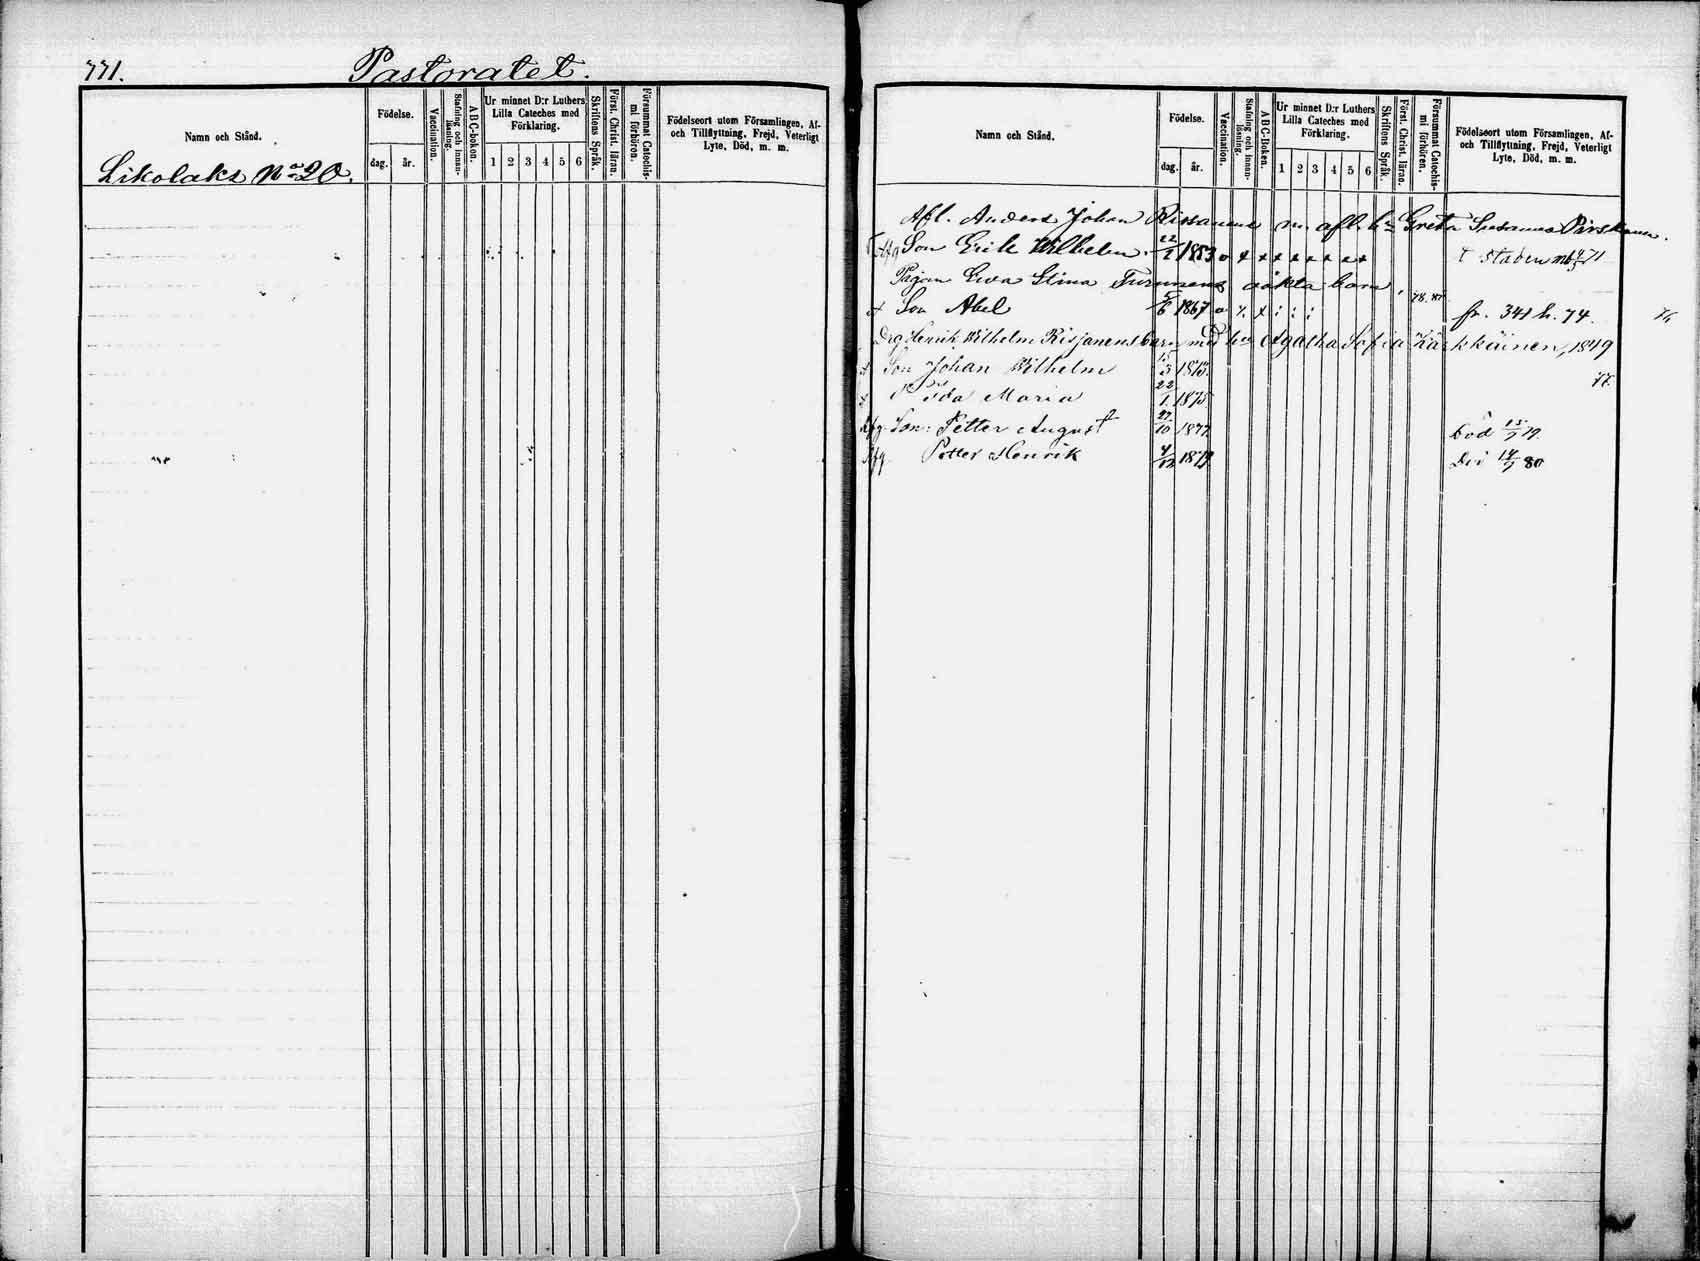 771. Pastoratet.
Namn och Stånd. Födelse. dag. år. Vaccination. Stafning och innanläsning. ABC-boken. Ur minnet D:r Luthers Lilla Cateches med Förklaring. 1 2 3 4 5 6 Skriftens Språk. Först. Christ. läran. Försummat Catechismi förhören. Födelseort utom Församlingen, Af- och Tillflyttning, Frejd, Veterligt Lyte, Död, m. m.
Likolaks No 20.
Namn och Stånd. Födelse. dag. år. Vaccination. Stafning och innanläsning. ABC-Boken. Ur minnet D:r Luthers Lilla Cateches med Förklaring. 1 2 3 4 5 6 Skriftens Språk. Först. Christ. läran. Försummat Catechismi förhören. Födelseort utom Församlingen, Af- och Tillflyttning, Frejd, Veterligt Lyte, Död, m. m.
Afl. Anders Johan Rissanens m. afl. h:u Greta Susanna
Son Erik Wilhelm 22/2 1853 o x x x x x x x x t staden 71
Pigan Ewa Stina Turunens oäkta barn, 78. 87
Son Abel 5/6 1867 o x fr. 341 h. 74.
Drg Henrik Wilhelm Risjanens barn med h:u Agatha Sofia Kärkkäinen, 1849
Son Johan Wilhelm 15/3 1873. 77.
D Ida Maria 22/1 1875
Afg. Son: Petter August † 27/10 1877 död 15/7 79.
Afg Petter Henrik 4/12 1879 Död 14/7 80